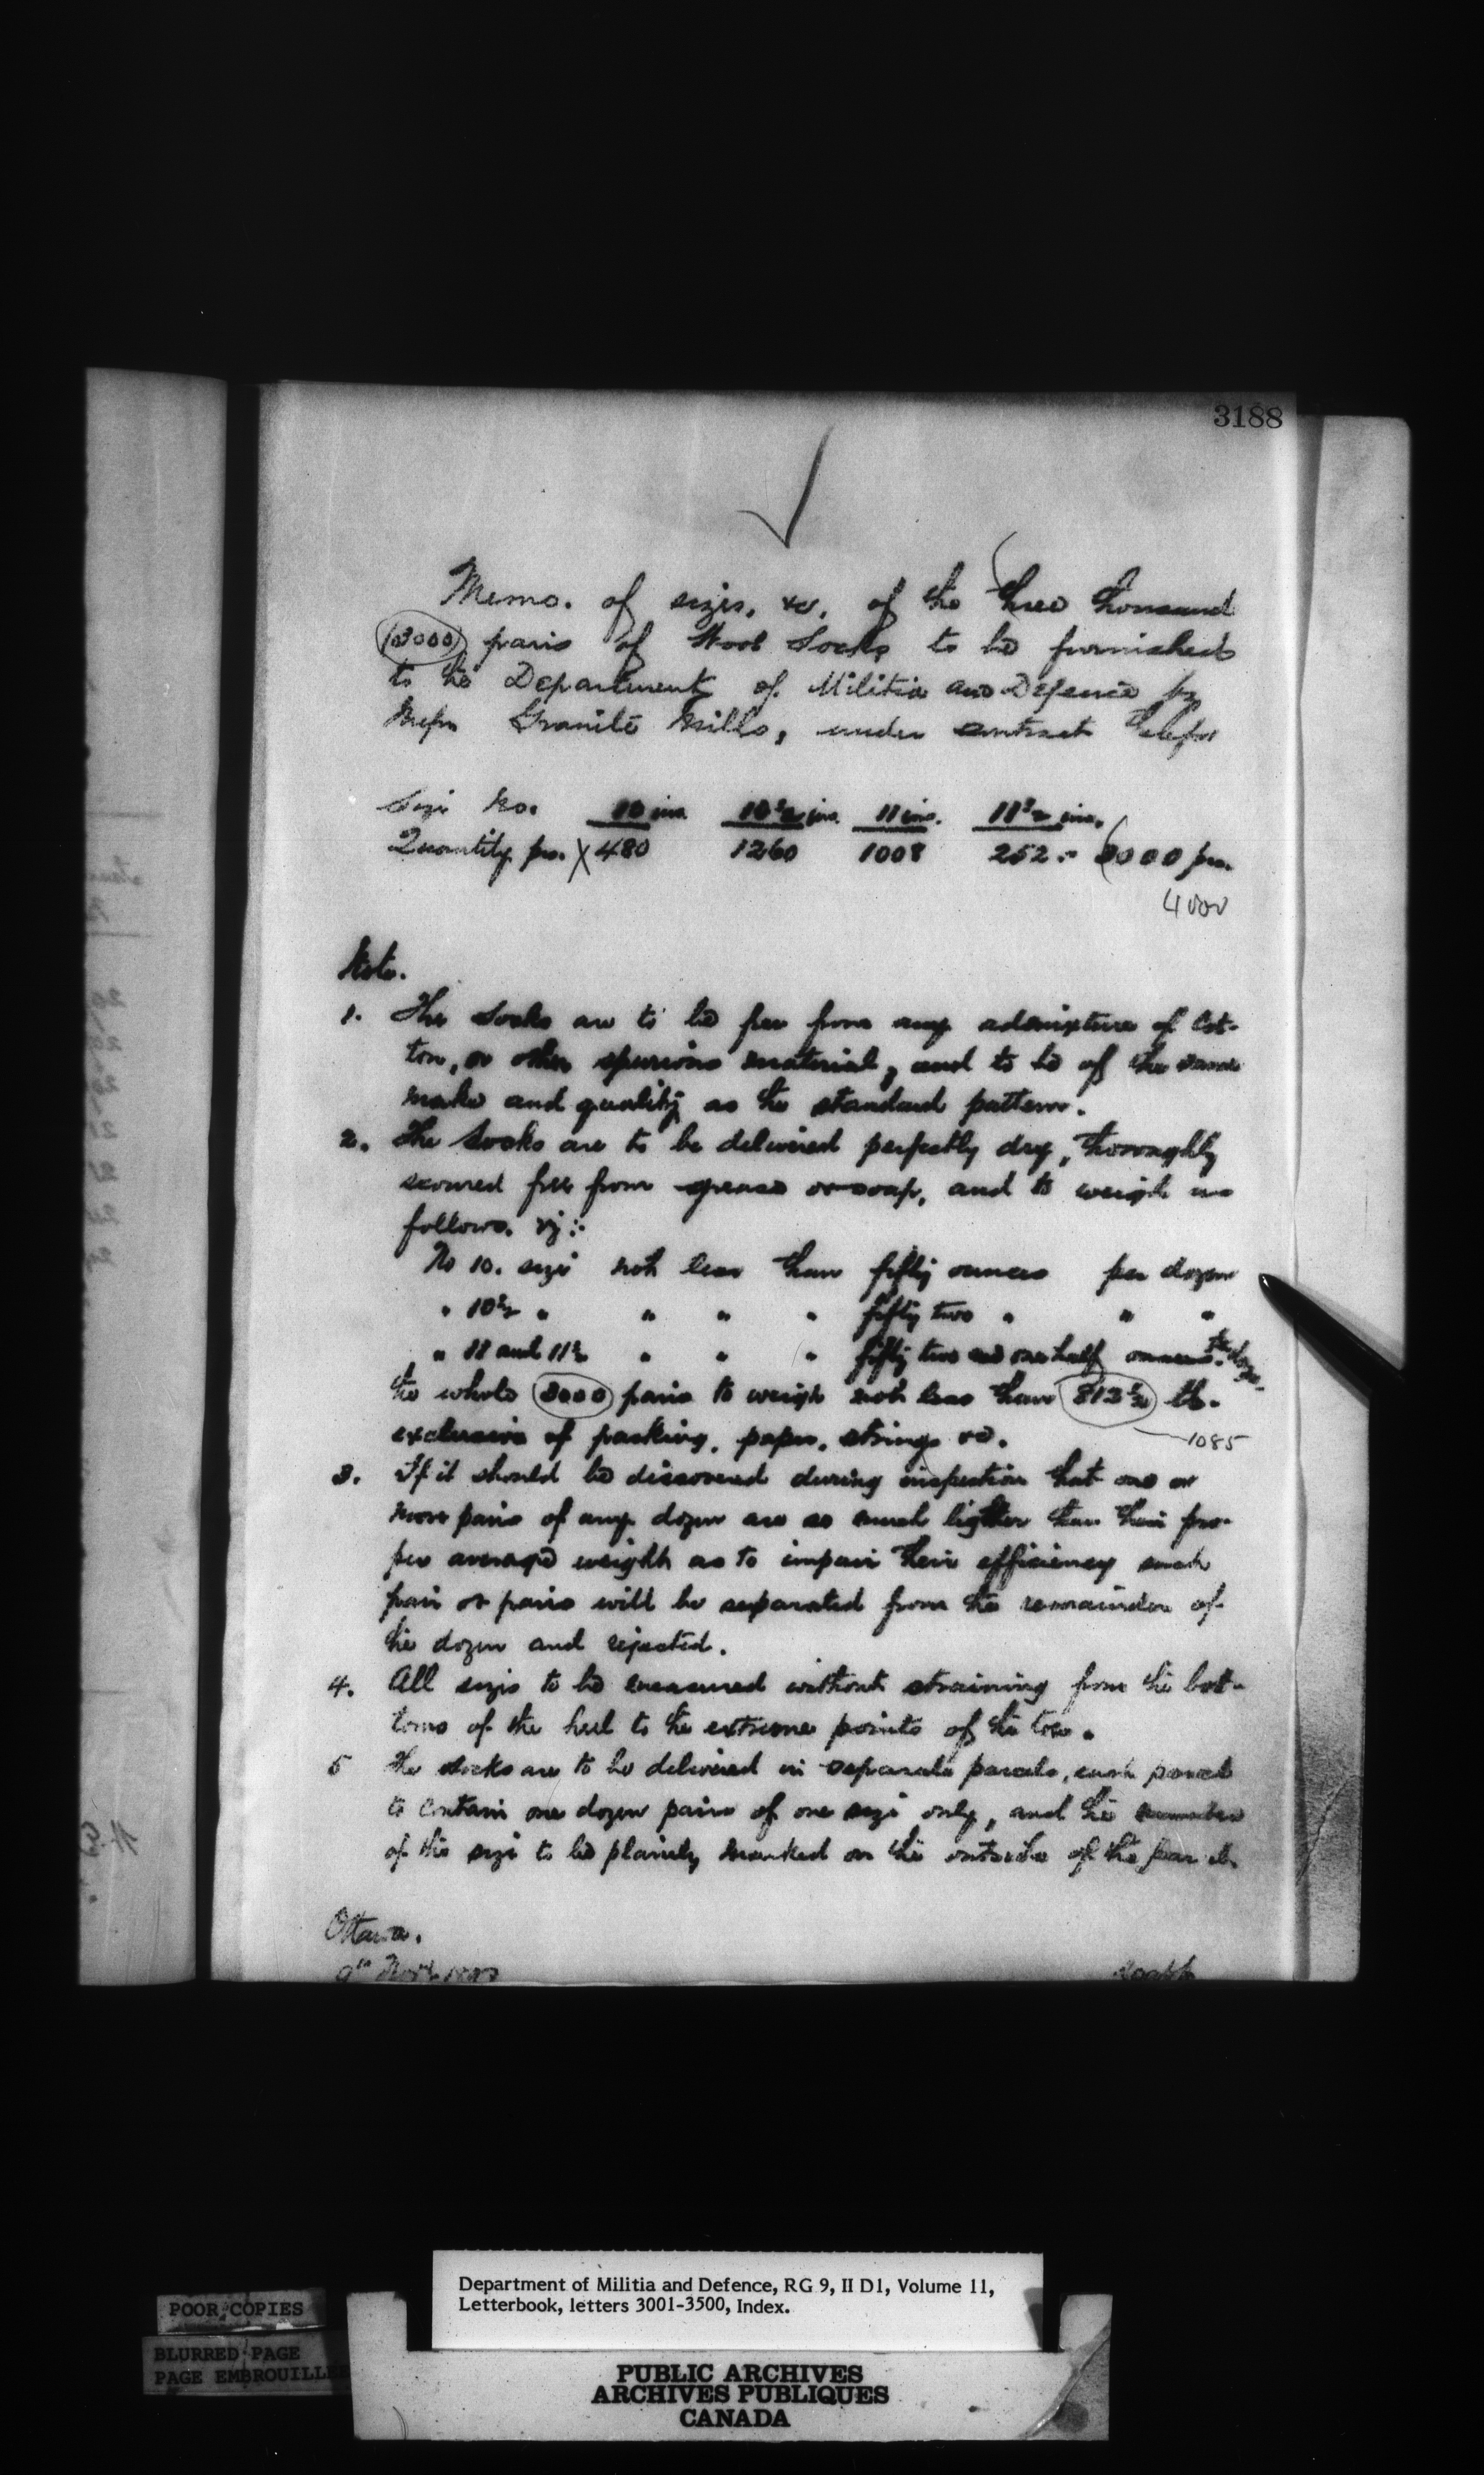 3188
Memo. of sizes, &c, of the three thousand
(3000) pairs of Wool Socks to be furnished
to the Department of Militia and Defence by
Messrs Granite Mills, under contract
Size No. 10 ins. 10½ ins. 11 ins. 11½ ins.
Quantity prs. X 480 1260 1008 252 :- 3000 prs.
4000
Note.
1. The Socks are to be free from any admixture of Cot-
ton, or other spurious material, and to be of the same
make and quality as the standard pattern.
2. The Socks are to be delivered perfectly dry, thoroughly
scoured free from grease or soap, and to weigh as
follows. viz :-
No 10. size not less than fifty ounces per dozen
" 10½ " " " " fifty two " " "
" 11 and 11½ " " " fifty two and one half ounces
the whole 3000 pairs to weigh not less than 812½ lb.
exclusive of packing, paper, strings &c.
1085
3. If it should be discovered during inspection that one or
more pairs of any dozen are so much lighter than their pro-
per average weight as to impair their efficiency such
pair or pairs will be separated from the remainder of
the dozen and rejected.
4. All sizes to be measured without straining from the bot-
toms of the heel to the extreme points of the toe.
5 The socks are to be delivered in separate parcels, each parcel
to contain one dozen pairs of one size only, and the number
of the size to be plainly marked on the outside of the parcel.
Ottawa.
9th Novr.
Department of Militia and Defence, RG 9, II D1, Volume 11,
Letterbook, letters 3001-3500, Index.
POOR COPIES
BLURRED PAGE
PAGE EMBROUILLE
PUBLIC ARCHIVES
ARCHIVES PUBLIQUES
CANADA